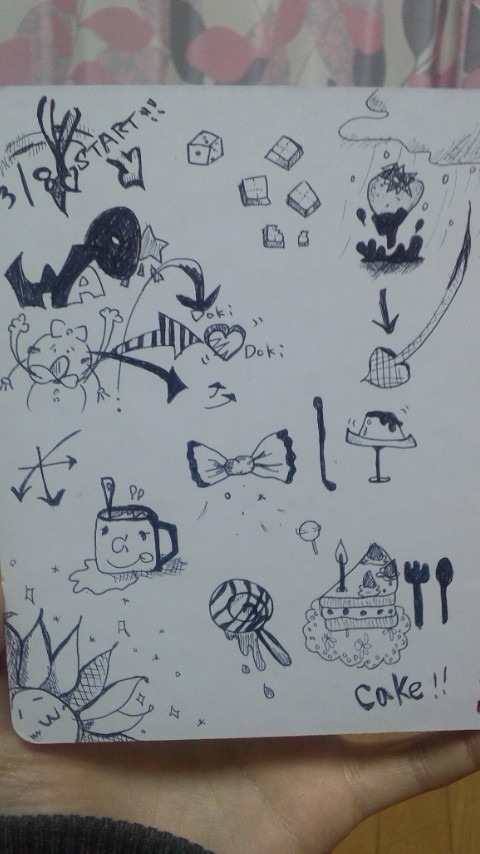 START!!
3/8
Doki
Doki
cake!!